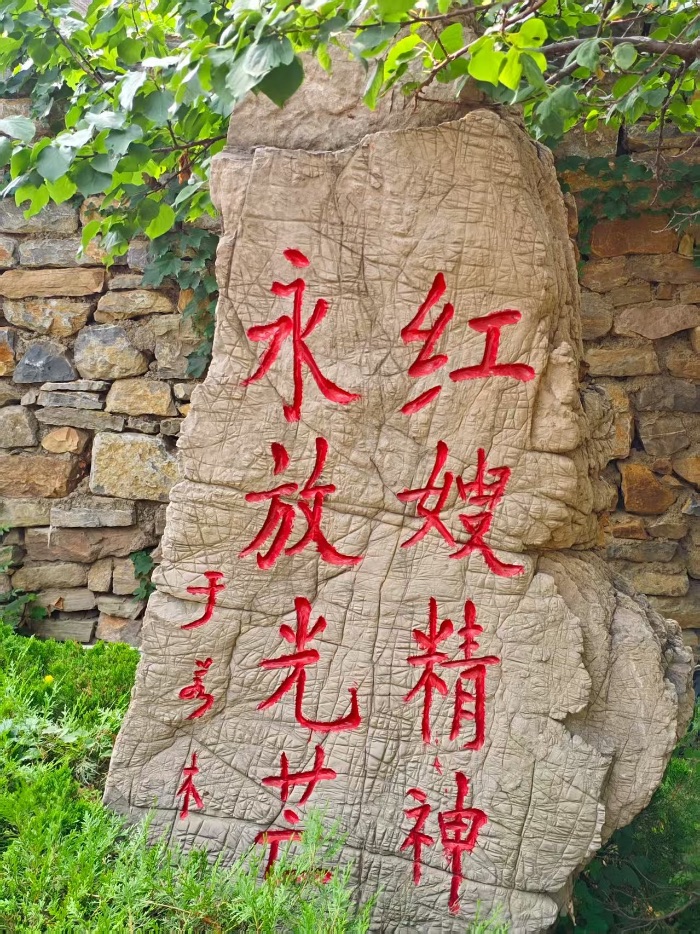 红嫂精神
永放光芒
于若木